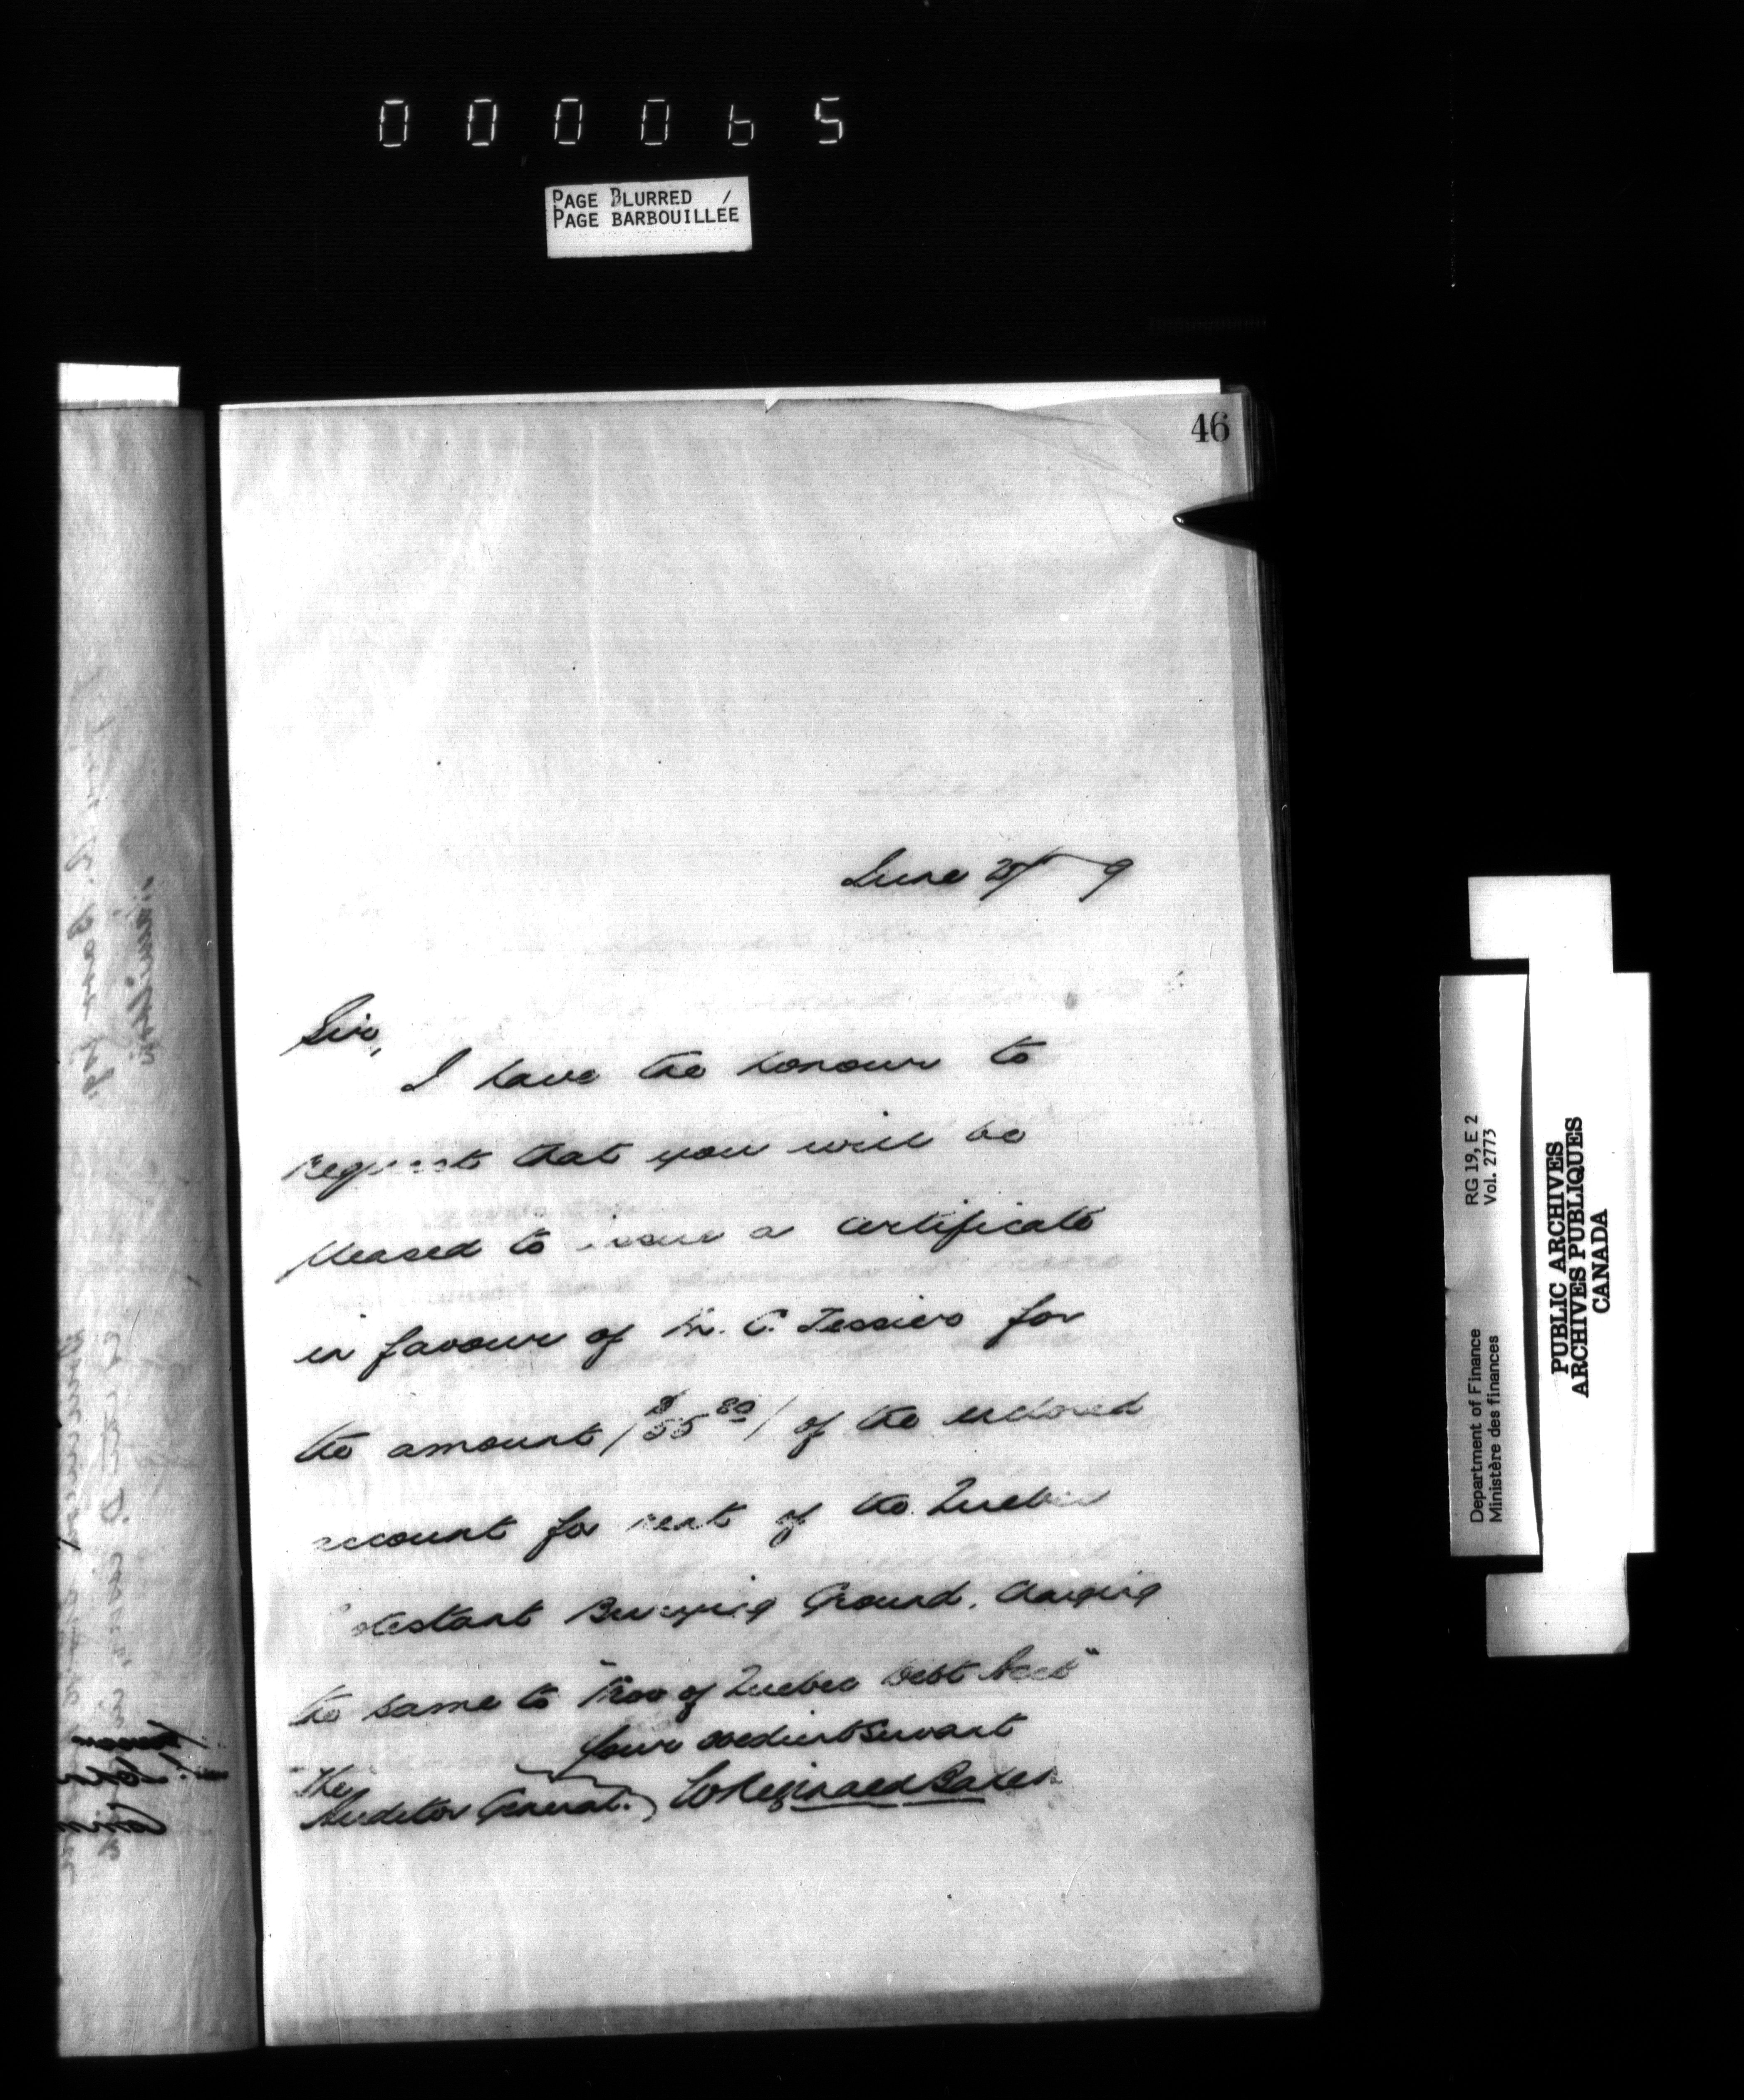 000065
PAGE BLURRED /
PAGE BARBOUILLÉE
46
June 9
Sir,
I have the honour to
request that you will be
pleased to issue a certificate
in favour of M. C. Tessier for
the amount ($55 80) of the enclosed
account for rent of the Quebec
Protestant Burying Ground, charging
the same to "Prov of Quebec Debt Acct"
Your obedient Servant
W Reginald Baker
The
Auditor General.
Department of Finance RG 19, E 2
Ministère des finances Vol. 2773
PUBLIC ARCHIVES
ARCHIVES PUBLIQUES
CANADA